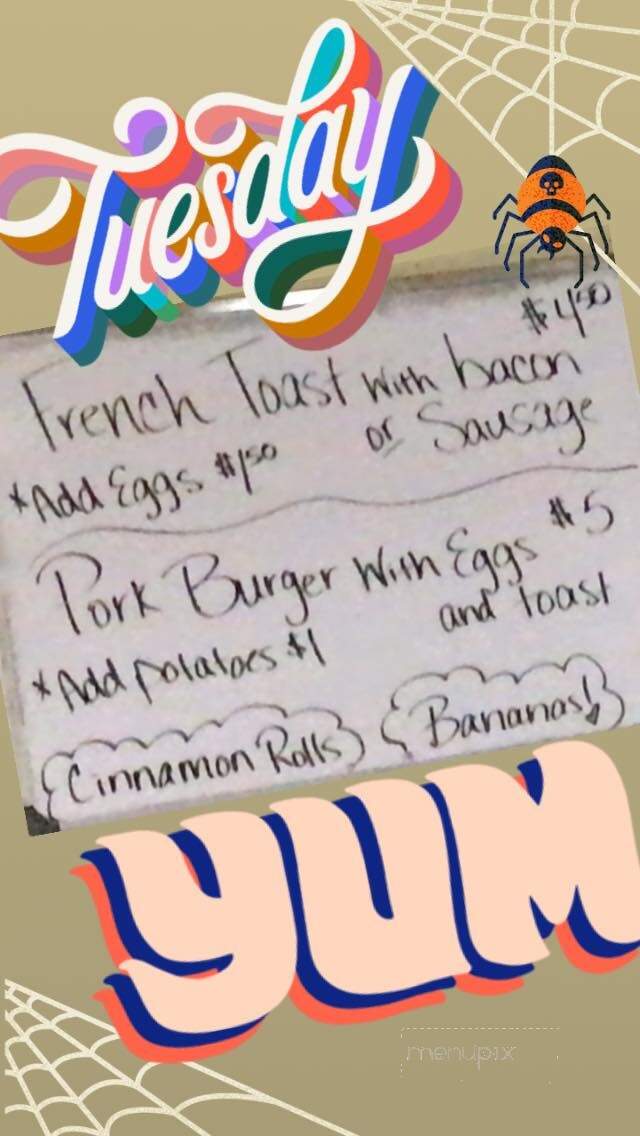 Tuesday
$4.50
French Toast with bacon
or Sausage
*Add Eggs $1.50
Pork Burger with Eggs $5
and toast
*Add potatoes $1
Cinnamon Rolls
Bananas!
YUM
menupix